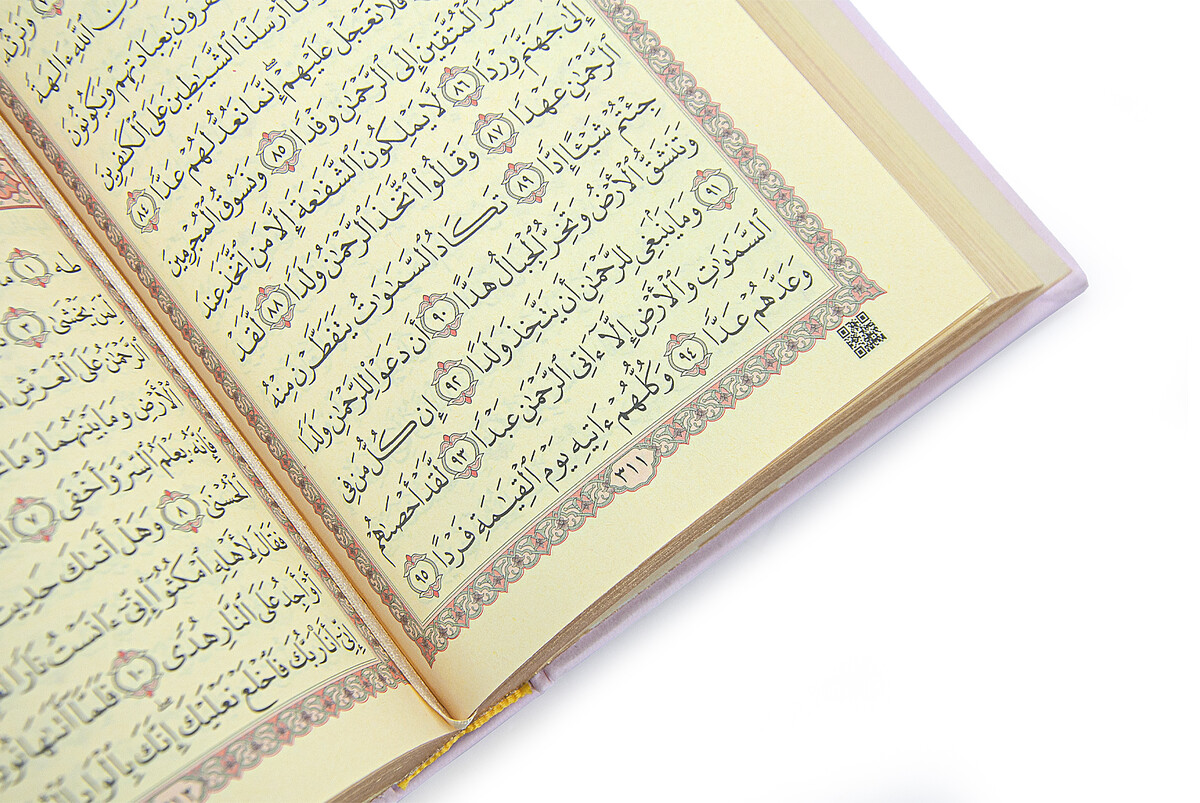 وَنَرِثُهُۥ
ٱللَّهِ ءَالِهَةً
بِعِبَادَتِهِمْ وَيَكُونُونَ
أَرْسَلْنَا ٱلشَّيَٰطِينَ عَلَى ٱلْكَٰفِرِينَ
فَلَا تَعْجَلْ عَلَيْهِمْ ۖ إِنَّمَا نَعُدُّ لَهُمْ عَدًّا ٨٤
ٱلْمُتَّقِينَ إِلَى ٱلرَّحْمَٰنِ وَفْدًا ٨٥ وَنَسُوقُ ٱلْمُجْرِمِينَ
إِلَىٰ جَهَنَّمَ وِرْدًا ٨٦ لَّا يَمْلِكُونَ ٱلشَّفَٰعَةَ إِلَّا مَنِ ٱتَّخَذَ عِندَ
ٱلرَّحْمَٰنِ عَهْدًا ٨٧ وَقَالُوا۟ ٱتَّخَذَ ٱلرَّحْمَٰنُ وَلَدًا ٨٨ لَّقَدْ
جِئْتُمْ شَيْـًٔا إِدًّا ٨٩ تَكَادُ ٱلسَّمَٰوَٰتُ يَتَفَطَّرْنَ مِنْهُ
وَتَنشَقُّ ٱلْأَرْضُ وَتَخِرُّ ٱلْجِبَالُ هَدًّا ٩٠ أَن دَعَوْا۟ لِلرَّحْمَٰنِ وَلَدًا
٩١ وَمَا يَنۢبَغِى لِلرَّحْمَٰنِ أَن يَتَّخِذَ وَلَدًا ٩٢ إِن كُلُّ مَن فِى
ٱلسَّمَٰوَٰتِ وَٱلْأَرْضِ إِلَّآ ءَاتِى ٱلرَّحْمَٰنِ عَبْدًا ٩٣ لَّقَدْ أَحْصَىٰهُمْ
وَعَدَّهُمْ عَدًّا ٩٤ وَكُلُّهُمْ ءَاتِيهِ يَوْمَ ٱلْقِيَٰمَةِ فَرْدًا ٩٥
٣١١
طه ١
لِّمَن يَخْشَىٰ ٣
ٱلرَّحْمَٰنُ عَلَى ٱلْعَرْشِ
ٱلْأَرْضِ وَمَا بَيْنَهُمَا وَمَا
فَإِنَّهُۥ يَعْلَمُ ٱلسِّرَّ وَأَخْفَى ٧
ٱلْحُسْنَىٰ ٨ وَهَلْ أَتَىٰكَ حَدِيثُ
فَقَالَ لِأَهْلِهِ ٱمْكُثُوٓا۟ إِنِّىٓ ءَانَسْتُ نَارًا
أَوْ أَجِدُ عَلَى ٱلنَّارِ هُدًى ١٠ فَلَمَّآ أَتَىٰهَا نُودِىَ
إِنِّىٓ أَنَا۠ رَبُّكَ فَٱخْلَعْ نَعْلَيْكَ ۖ إِنَّكَ بِٱلْوَادِ